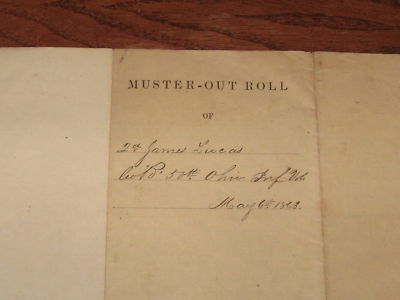 MUSTER-OUT ROLL
OF
James Lucas
Co. B. 58th Ohio Inf Vol
May 6th 1863.